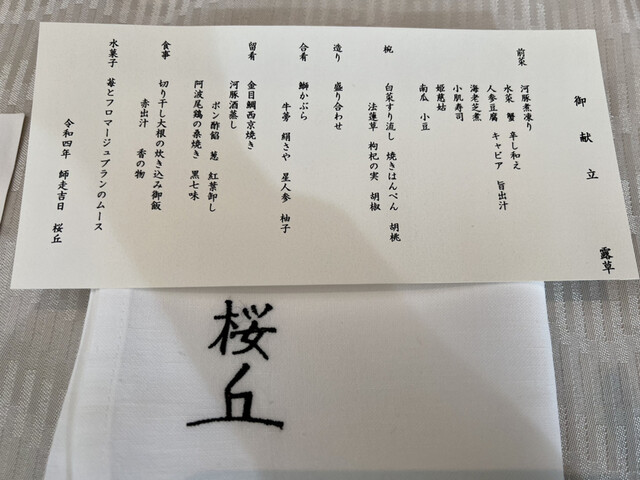 露草
御献立
前菜　河豚煮凍り
水菜　蟹　辛し和え
人参豆腐　キャビア　旨出汁
海老芝煮
小肌寿司
姫慈姑
南瓜　小豆
椀　白菜すり流し　焼きはんぺん　胡桃
法蓮草　枸杞の実　胡椒
造り　盛り合わせ
合肴　鰤かぶら
牛蒡　絹さや　星人参　柚子
留肴　金目鯛西京焼き
河豚酒蒸し
ポン酢餡　葱　紅葉卸し
阿波尾鶏の桑焼き　黒七味
食事　切り干し大根の炊き込み御飯
赤出汁　香の物
水菓子　苺とフロマージュブランのムース
令和四年　師走吉日　桜丘
桜丘